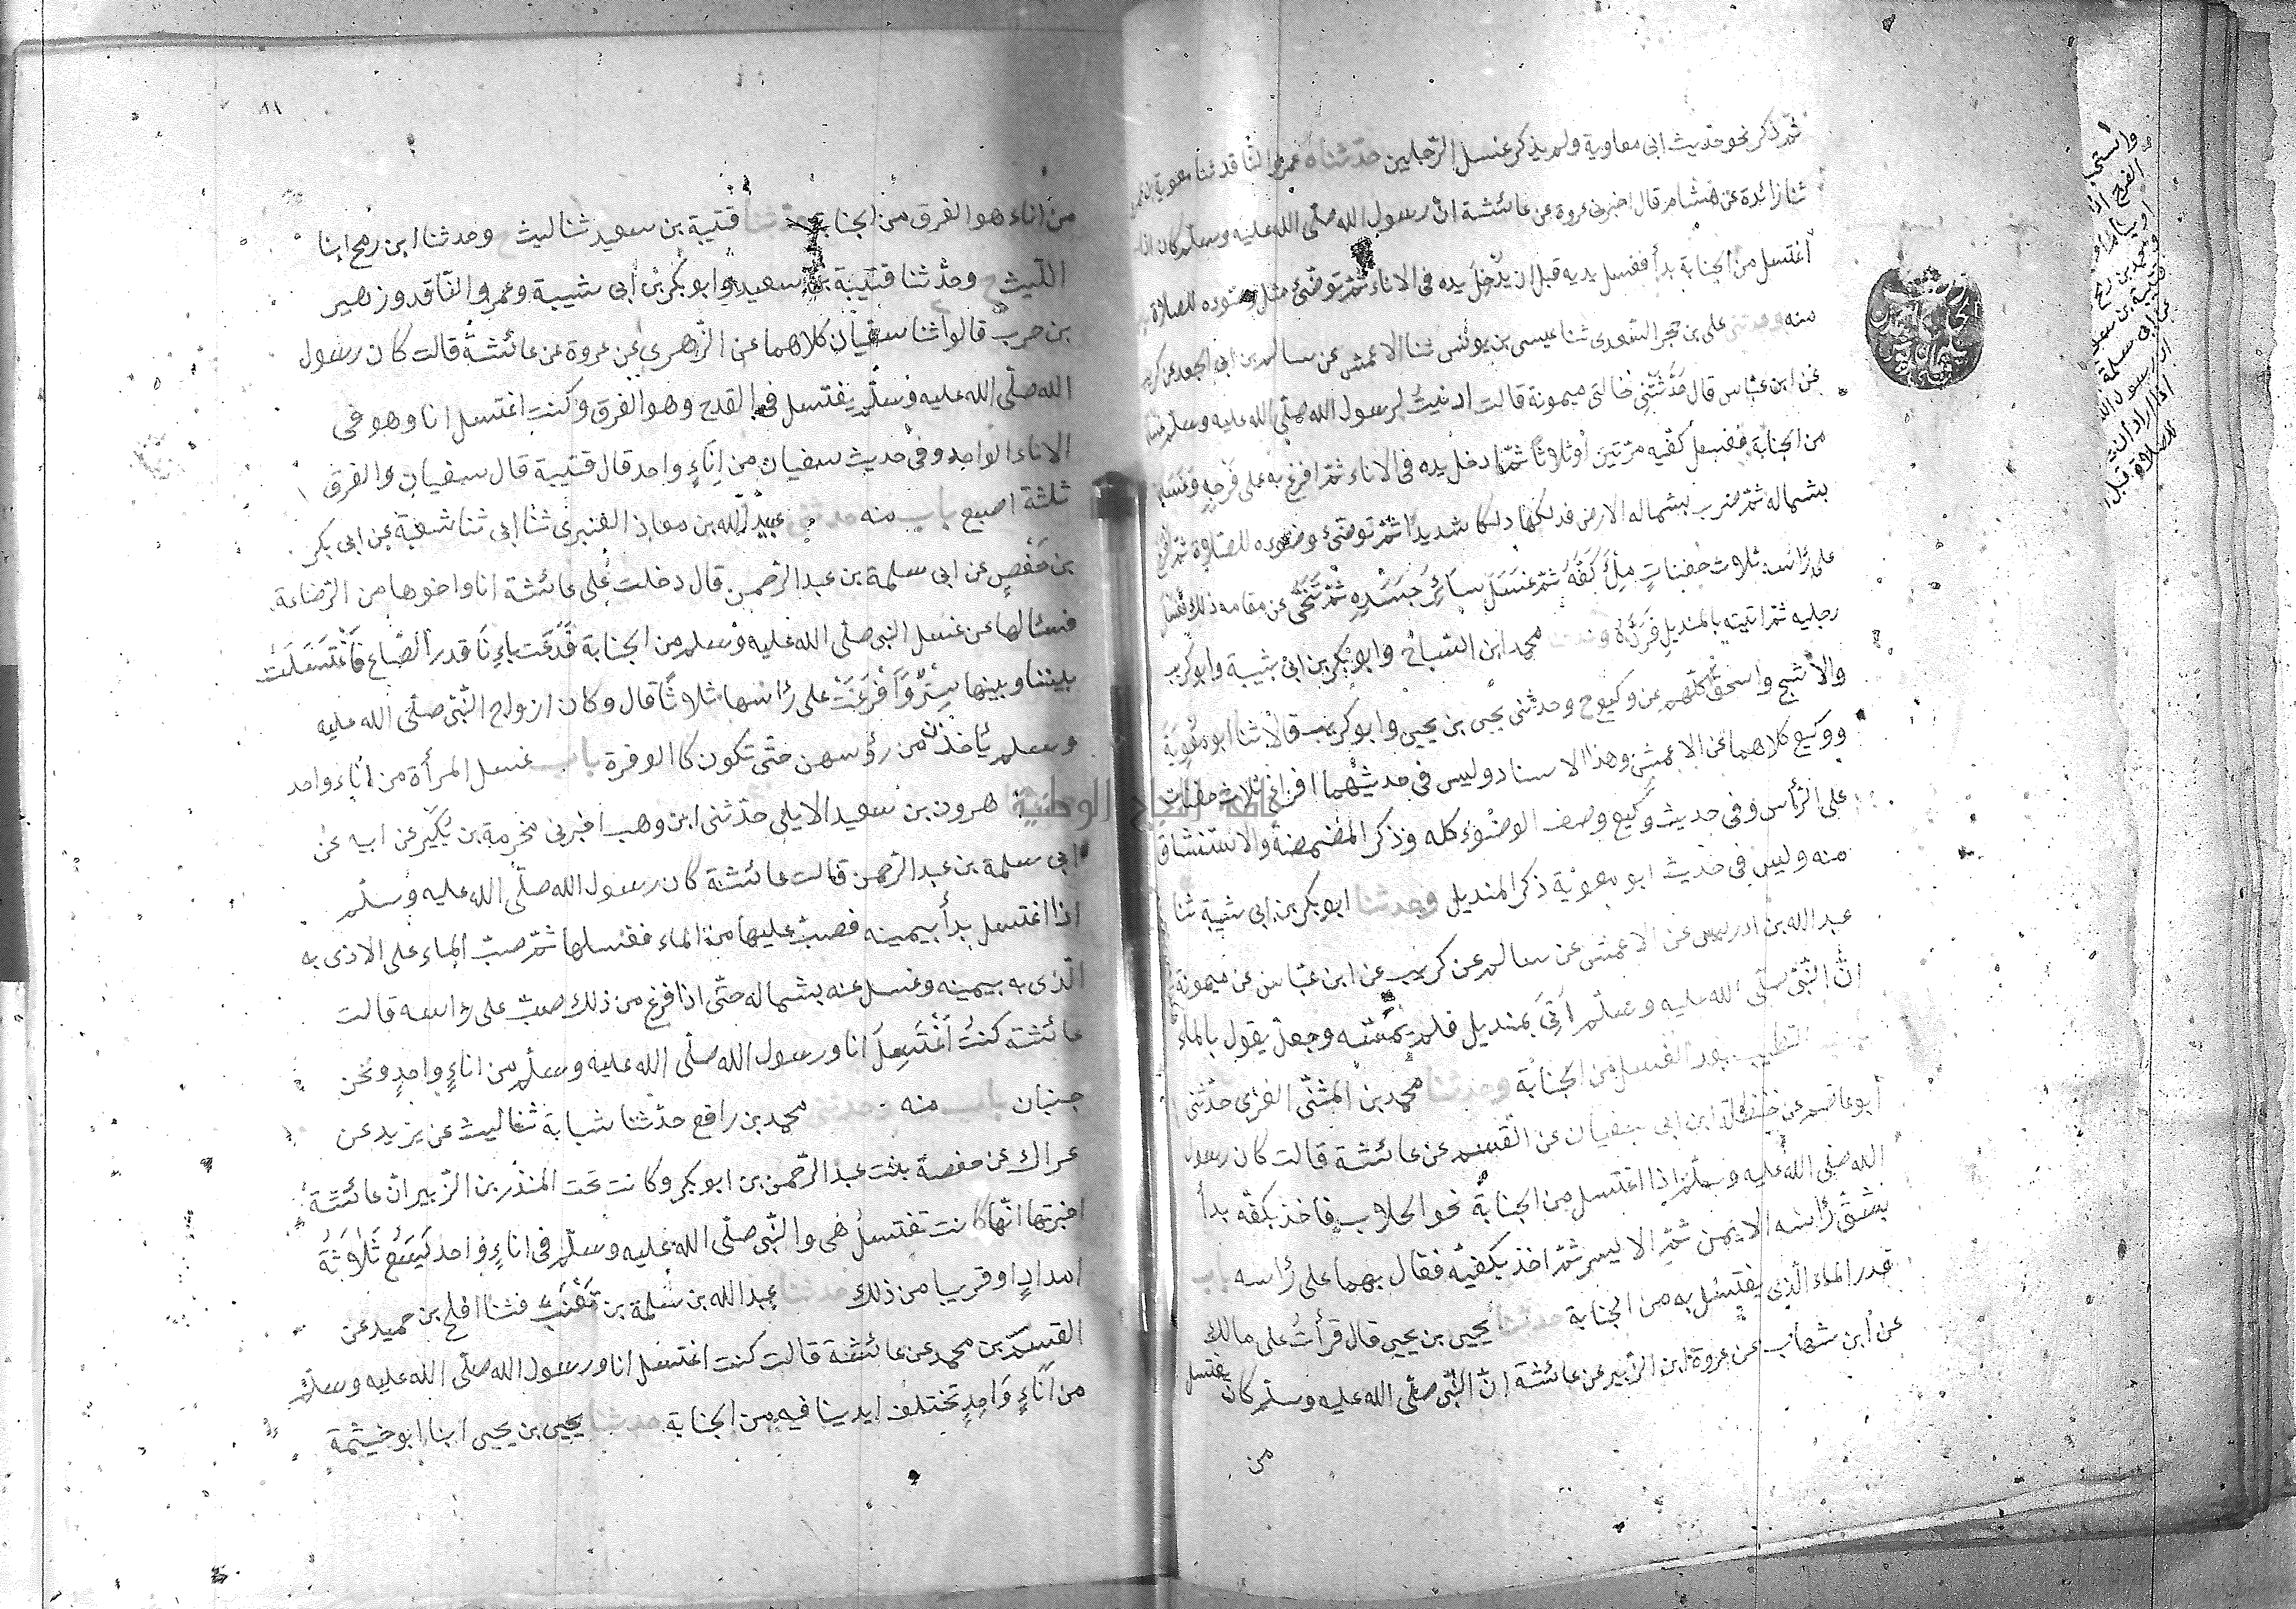 ثم ذكر نحو حديث ابى معاوية ولم يذكر غسل الرجلين حدثناه عمرو الناقد ثنا معوية بن
ثنا زائدة عن هشام قال اخبرنى عروة عن عائشة ان رسول الله صلى الله عليه وسلم كان اذا
اغتسل من الجنابة بدأ فغسل يديه قبل ان يدخل يده فى الاناء ثم توضئ مثل وضوءه للصلاة
منه وحدثنى على بن حجر السعدى ثنا عيسى بن يونس ثنا الاعمش عن سالم بن ابى الجعد عن كريب
عن ابن عباس قال حدثتنى خالتى ميمونة قالت ادنيت لرسول الله صلى الله عليه وسلم غسله
من الجنابة فغسل كفيه مرتين او ثلاثا ثم ادخل يده فى الاناء ثم افرغ به على فرجه وغسله
بشماله ثم ضرب بشماله الارض فدلكها دلكا شديدا ثم توضئ وضوءه للصلوة ثم افرغ
على رأسه ثلاث حفنات ملأ كفه ثم غسل سائر جسده ثم تنحى عن مقامه ذلك فغسل
رجليه ثم اتيته بالمنديل فرده وحدثنا محمد ابن الصباح وابو بكر بن ابى شيبة وابو كريب
والاشج واسحق كلهم عن وكيع ح وحدثنى يحيى بن يحيى وابو كريب قالا ثنا ابو معوية
ووكيع كلاهما عن الاعمش وهذا الاسناد وليس فى حديثهما افراغ ثلاث حفنات
على الرأس وفى حديث وكيع وصف الوضوء كله وذكر المضمضة والاستنشاق
منه وليس فى حديث ابو معوية ذكر المنديل وحدثنا ابو بكر بن ابى شيبة ثنا
عبد الله بن ادريس عن الاعمش عن سالم عن كريب عن ابن عباس عن ميمونة
ان النبى صلى الله عليه وسلم اتى بمنديل فلم يمسه وجعل يقول بالماء
التطيب بعد الغسل من الجنابة وحدثنا محمد بن المثنى العنزى حدثنى
ابو عاصم عن حنظلة ابن ابى سفيان عن القسم عن عائشة قالت كان رسول
الله صلى الله عليه وسلم اذا اغتسل من الجنابة نحو الحلاب فاخذ بكفه بدأ
بشق رأسه الايمن ثم الايسر ثم اخذ بكفيه فقال بهما على رأسه باب
قدر الماء الذى يغتسل به من الجنابة حدثنا يحيى بن يحيى قال قرأت على مالك
عن ابن شهاب عن عروة ابن الزبير عن عائشة ان النبى صلى الله عليه وسلم كان يغتسل
من
من اناء هو الفرق من الجنابة حدثنا قتيبة بن سعيد ثنا ليث ح وحدثنا ابن رمح ابنا
الليث ح وحدثنا قتيبة بن سعيد وابو بكر بن أبى شيبة وعمرو الناقد وزهير
بن حرب قالوا ثنا سفيان كلاهما عن الزهرى عن عروة عن عائشة قالت كان رسول
الله صلى الله عليه وسلم يغتسل فى القدح وهو الفرق وكنت اغتسل انا وهو فى
الاناء الواحد وفى حديث سفيان من اناء واحد قال قتيبة قال سفيان والفرق
ثلثة اصبع باب منه حدثنى عبيد الله بن معاذ العنبرى ثنا ابى ثنا شعبة عن ابى بكر
بن حفص عن ابى سلمة بن عبد الرحمن قال دخلت على عائشة انا واخوها من الرضاعة
فسئالها عن غسل النبى صلى الله عليه وسلم من الجنابة فدعت باءناء قدر الصاع فاغتسلت
بيننا وبينها ستر وأفرغت على رأسها ثلاثا قال وكان ازواج النبى صلى الله عليه
وسلم يأخذن من رؤسهن حتى تكون كالوفرة باب غسل المرأة من اناء واحد
هرون بن سعيد الايلى حدثنى ابن وهب اخبرنى مخرمة بن بكير عن ابيه عن
ابى سلمة بن عبد الرحمن قالت عائشة كان رسول الله صلى الله عليه وسلم
اذا اغتسل بدأ بيمينه فصب عليها من الماء فغسلها ثم صب الماء على الاذى به
الذى به بيمينه وغسل عنه بشماله حتى اذا فرغ من ذلك صب على رأسه قالت
عائشة كنت اغتسل انا ورسول الله صلى الله عليه وسلم من اناء واحد ونحن
جنبان باب منه وحدثنى محمد بن رافع حدثنا شبابة ثنا ليث عن يزيد عن
عراك عن حفصة بنت عبد الرحمن بن ابو بكر وكانت تحت المنذر بن الزبير ان عائشة
اخبرتها انها كانت تغتسل هى والنبى صلى الله عليه وسلم فى اناء واحد يسع ثلاثة
امداد او قريبا من ذلك حدثنا عبد الله بن سلمة بن قعنب فثنا افلح بن حميد عن
القسم بن محمد عن عائشة قالت كنت اغتسل انا ورسول الله صلى الله عليه وسلم
من اناء واحد تختلف ايدينا فيه من الجنابة حدثنا يحيى بن يحيى ابنا ابو خيثمة
جامعة النجاح الوطنية